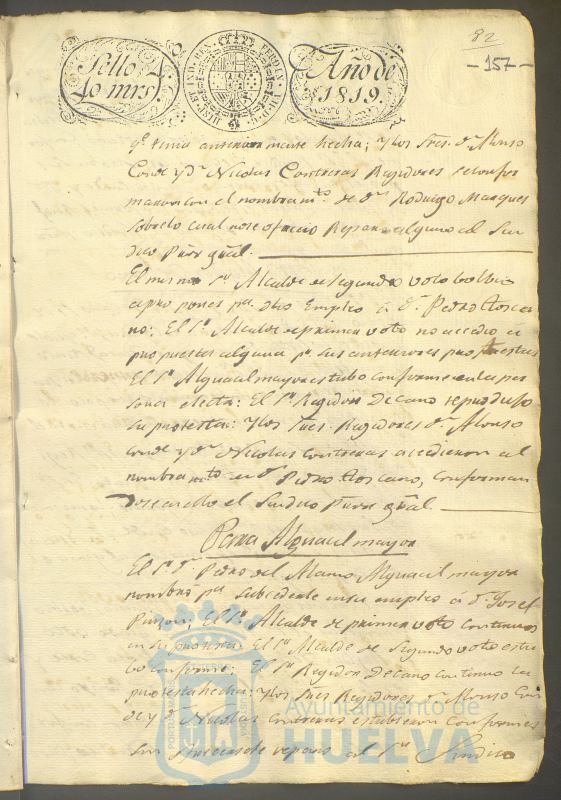 82
-157-
Sello 4.º
40 mrs.
HISP. ET IND. REX. FERDIN. VII. D. G.
Año de
1819.
q.e tenia anteriormente hecha; y los Sres. d.n Alonso
Conde y d.n Nicolas Contreras Regidores se confor
maron con el nombram.to de d.n Rodrigo Marques
sobre lo cual no se ofrecio Reparo alguno al Sin
dico Pũor gral.
El mismo S.or Alcalde de segundo voto bolbio
a proponer p.a dho Empleo á d.n Pedro Tosca
no: El S.r Alcalde de primer voto no accedio á
propuesta alguna p.r sus anteriores protestas
El S.r Alguacil mayor estubo conforme en la per
sona electa: El S.r Regidor Decano reproduJo
su protesta: y los Sres. Regidores d.n Alonso
Conde y d.n Nicolas Contreras accedieron al
nombram.to en d.n Pedro Toscano, conforman
dose a ello el Sindico Pũor gral.
Para Alguacil mayor
El S.r d.n Pedro del Alamo Alguacil mayor
nombro p.a Subcedente en su empleo á d.n Josef
Pinzon; El S.r Alcalde de primer voto continuo
en su protesta: El S.or Alcalde de Segundo voto estu
bo conforme: El S.r Regidor Decano continuo la
protesta hecha: y los Sres Regidores d.n Alonso Con
de y d.n Nicolas Contreras estubieron conformes
sin reparo al S.or Sindico
Ayuntamiento de
HUELVA